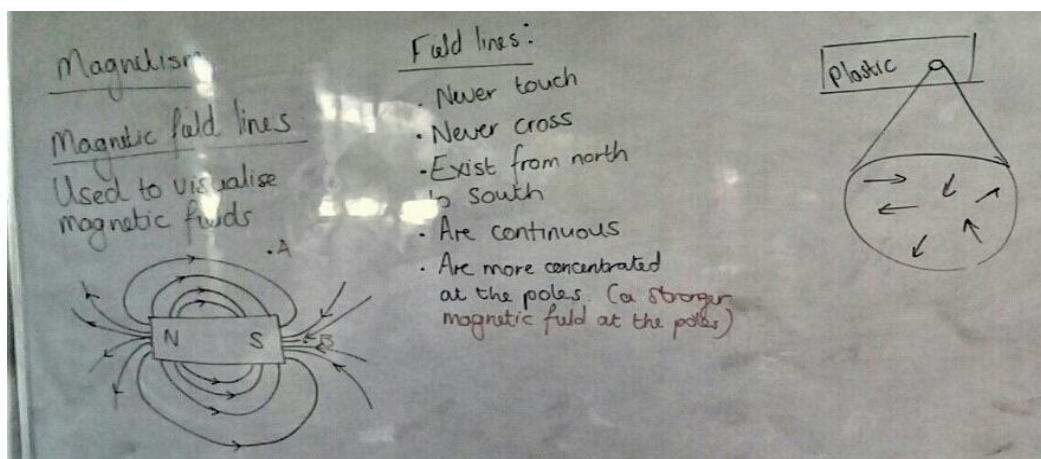 Magnetism
Magnetic field lines
Used to visualise
magnetic fields
A
N S
B
Field lines:
· Never touch
· Never cross
· Exist from north
to south
· Are continuous
· Are more concentrated
at the poles. (a stronger
magnetic field at the poles)
Plastic